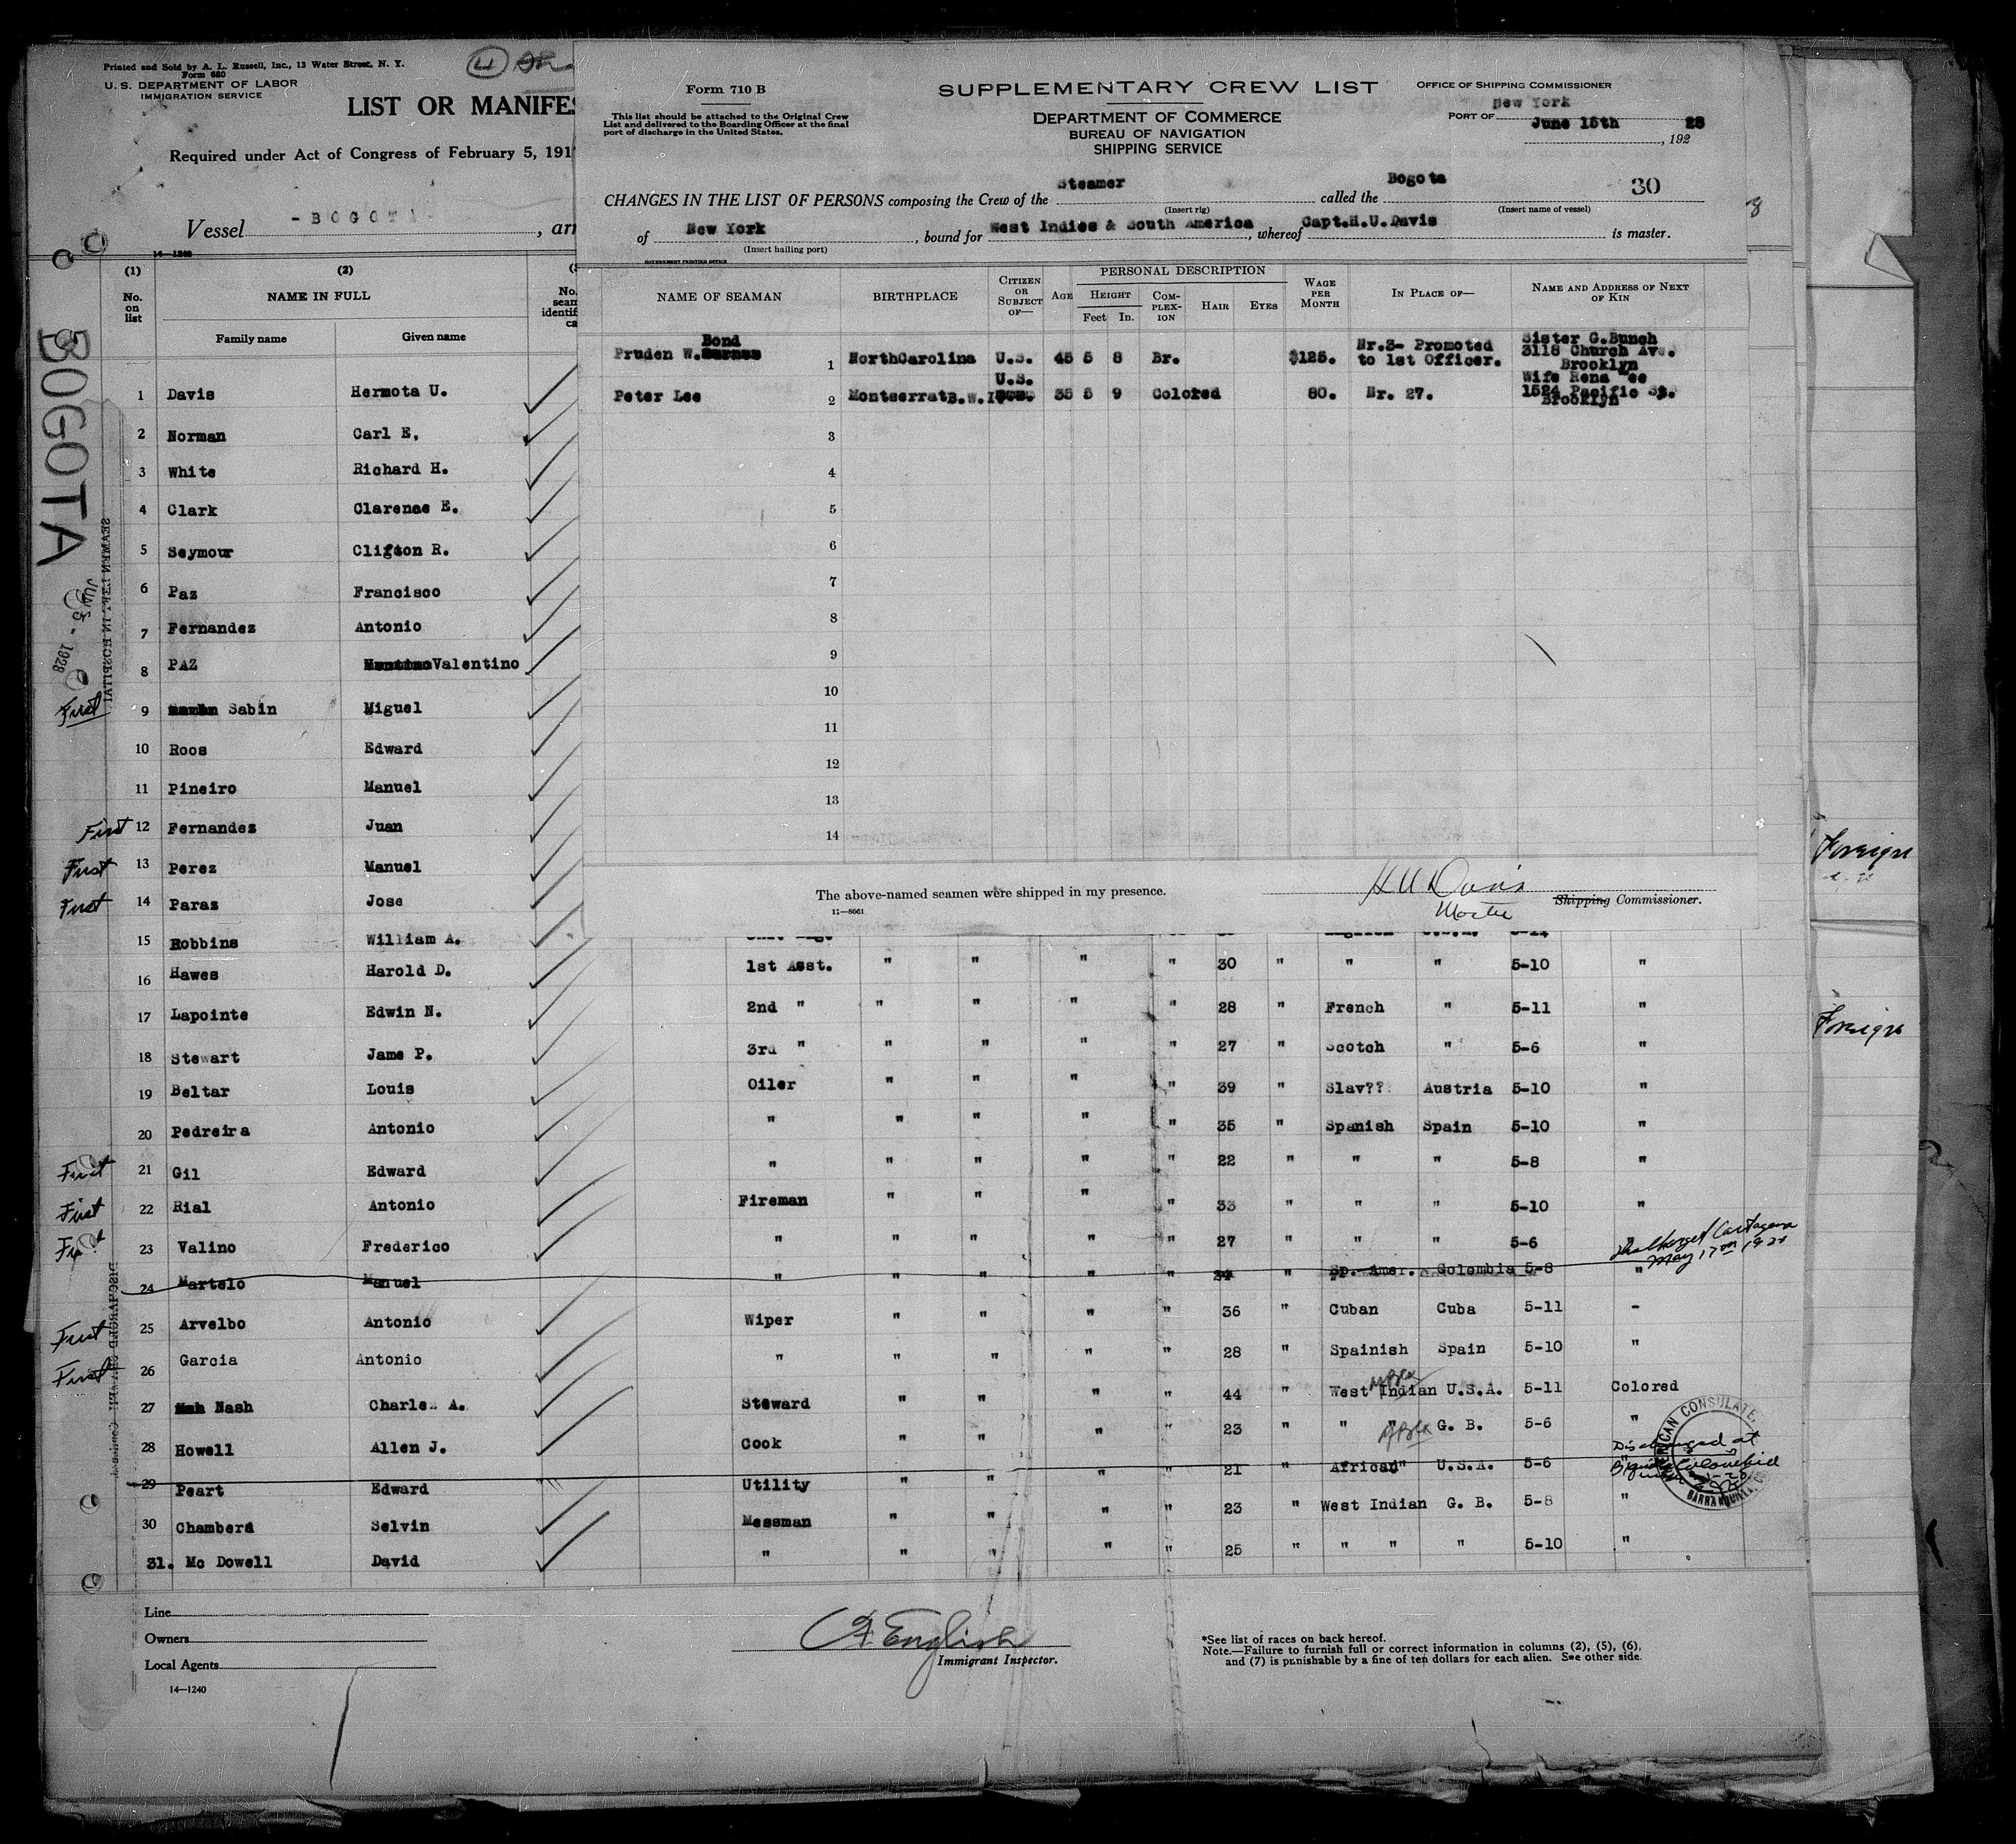 Printed and Sold by A. L. Russell, Inc., 13 Water Street, N. Y.
Form 680
U. S. DEPARTMENT OF LABOR
IMMIGRATION SERVICE
4
LIST OR MANIFES
Required under Act of Congress of February 5, 191
Vessel - BOGOTA - , arr
14—1240
(1) (2)
No. on list NAME IN FULL
Family name Given name
BOGOTA
SEAMEN LEFT IN HOSPITAL
JUN 5 - 1928
Form 710 B
This list should be attached to the Original Crew
List and delivered to the Boarding Officer at the final
port of discharge in the United States.
SUPPLEMENTARY CREW LIST
DEPARTMENT OF COMMERCE
BUREAU OF NAVIGATION
SHIPPING SERVICE
OFFICE OF SHIPPING COMMISSIONER
PORT OF New York
June 15th , 192 28
30
CHANGES IN THE LIST OF PERSONS composing the Crew of the Steamer called the Bogota
(Insert rig) (Insert name of vessel)
of New York , bound for West Indies & South America , whereof Capt.H.U.Davis is master.
(Insert hailing port)
GOVERNMENT PRINTING OFFICE
NAME OF SEAMAN BIRTHPLACE CITIZEN OR SUBJECT OF— AGE PERSONAL DESCRIPTION WAGE PER MONTH IN PLACE OF— NAME AND ADDRESS OF NEXT OF KIN
HEIGHT COMPLEXION HAIR EYES
Feet In.
Pruden W. Bond 1 NorthCarolina U.S. 45 5 8 Br. $125. Nr.3- Promoted to 1st Officer. Sister G.Bunch 3118 Church Ave. Brooklyn
Peter Lee 2 Montserrat B.W.I U.S. 35 5 9 Colored 80. Nr. 27. Wife Rena 1524 Pacific St. Brooklyn
3
4
5
6
7
8
9
10
11
12
13
14
The above-named seamen were shipped in my presence.
11—8661
H U Davis
Master
Shipping Commissioner.
1 Davis Hermota U.
2 Norman Carl E.
3 White Richard H.
4 Clark Clarenae E.
5 Seymour Clifton R.
6 Paz Francisco
7 Fernandez Antonio
8 PAZ Valentino
First 9 Sabin Miguel
10 Roos Edward
11 Pineiro Manuel
First 12 Fernandez Juan
First 13 Perez Manuel
First 14 Paraz Jose
15 Robbins William A.
16 Hawes Harold D. 1st Asst. " " " " 30 " " " 5-10 "
17 Lapointe Edwin N. 2nd " " " " " 28 " French " 5-11 "
18 Stewart Jame P. 3rd " " " " " 27 " Scotch " 5-6 "
19 Beltar Louis Oiler " " " " 39 " Slav?? Austria 5-10 "
20 Pedreira Antonio " " " " " 35 " Spanish Spain 5-10 "
First 21 Gil Edward " " " " " 22 " " " 5-8 "
First 22 Rial Antonio Fireman " " " " 33 " " " 5-10 "
First 23 Valino Frederico " " " " " 27 " " " 5-6
Cartagena
May 17
24 Martelo Manuel " " " " " 24 " Sp. Amer. Colombia 5-8 "
First 25 Arvelbo Antonio Wiper " " " " 36 " Cuban Cuba 5-11 -
First 26 Garcia Antonio " " " " " 28 " Spainish Spain 5-10 "
27 Nash Charles A. Steward " " " " 44 " West Indian U.S.A. 5-11 Colored
28 Howell Allen J. Cook " " " " 23 " " " G. B. 5-6 "
29 Peart Edward Utility " " " " 21 " African" U.S.A. 5-6 "
Discharged at
30 Chamberd Selvin Messman " " " " 23 " West Indian G. B. 5-8 "
31. Mc Dowell David " " " " " 25 " " " " 5-10 "
Foreign
Foreign
Line
Owners
Local Agents
14—1240
English
Immigrant Inspector.
*See list of races on back hereof.
Note.—Failure to furnish full or correct information in columns (2), (5), (6),
and (7) is punishable by a fine of ten dollars for each alien. See other side.